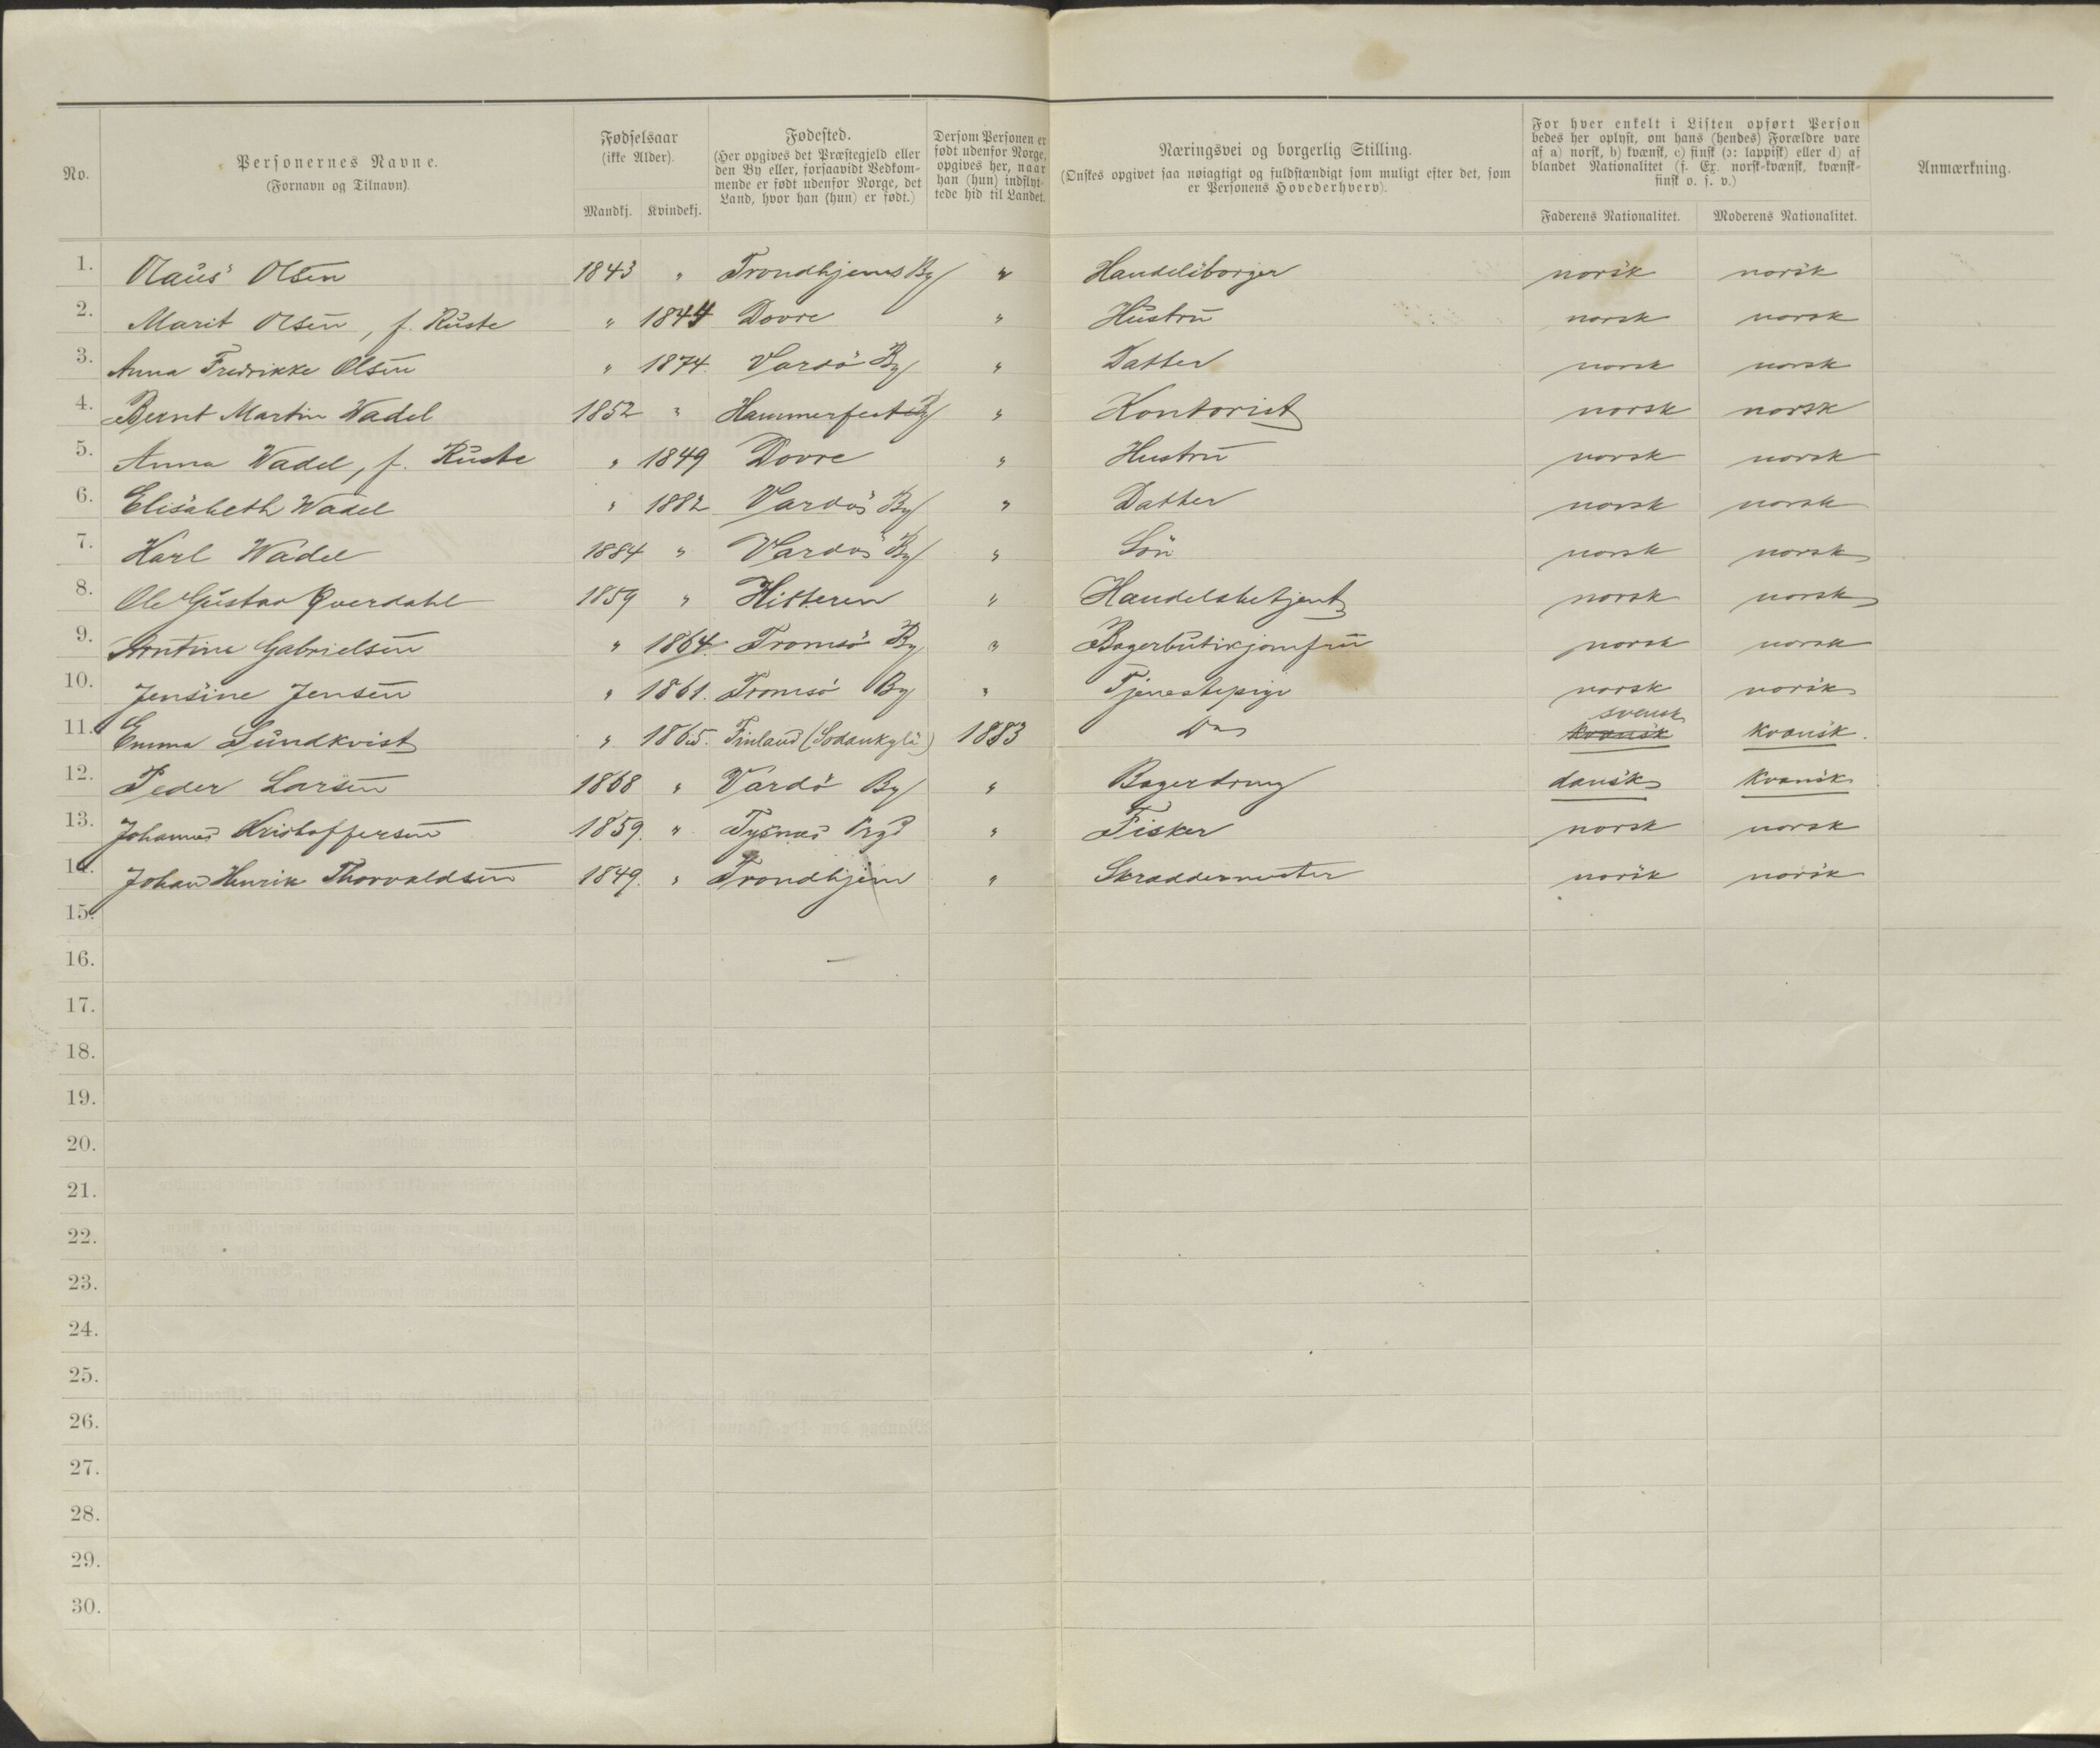 No.
Personernes Navne.
(Fornavn og Tilnavn).
Fødselsaar
(ikke Alder).
Mandkj. Kvindekj.
Fødested.
(Her opgives det Præstegjeld eller
den By eller, forsaavidt Vedkom-
mende er født udenfor Norge, det
Land, hvor han (hun) er født.)
Dersom Personen er
født udenfor Norge,
opgives her, naar
han (hun) indflyt-
tede hid til Landet.
Næringsvei og borgerlig Stilling.
(Ønskes opgivet saa nøiagtigt og fuldstændigt som muligt efter det, som
er Personens Hovederhverv).
For hver enkelt i Listen opført Person
bedes her oplyst, om hans (hendes) Forældre vare
af a) norsk, b) kvænsk, c) finsk (ɔ: lappisk) eller d) af
blandet Nationalitet (f. Ex. norsk-kvænsk, kvænsk-
finsk o. s. v.)
Faderens Nationalitet. Moderens Nationalitet.
Anmærkning.
1. Olaus Olsen 1843 " Trondhjems By " Handelsborger norsk norsk
2. Marit Olsen, f. Ruste " 1844 Dovre " Hustru norsk norsk
3. Anna Fredrikke Olsen " 1874. Vardö By " Datter norsk norsk
4. Bernt Martin Wadel 1852 " Hammerfest By " Kontorist norsk norsk
5. Anna Wadel, f. Ruste " 1849 Dovre " Hustru norsk norsk
6. Elisabeth Wadel " 1882 Vardö By " Datter norsk norsk
7. Karl Wadel 1884 " Vardö By " Sön norsk norsk
8. Ole Gustav Qverdahl 1859 " Hitteren " Handelsbetjent norsk norsk
9. Arntine Gabrielsen " 1864. Tromsö By " Bagerbutikjomfru norsk norsk
10. Jensine Jensen " 1861. Tromsö By " Tjenestepige norsk norsk
svensk
11. Emma Sundkvist " 1865. Finland (Sodankylä) 1883 Do kvænsk kvænsk.
12. Peder Larsen 1868 " Vardö By " Bagerdreng dansk kvænsk
13. Johannes Kristoffersen 1859. " Tysnæs Prgd " Fisker norsk norsk
14. Johan Henrik Thorvaldsen 1849. " Trondhjem " Skræddermester norsk norsk
15.
16.
17.
18.
19.
20.
21.
22.
23.
24.
25.
26.
27.
28.
29.
30.